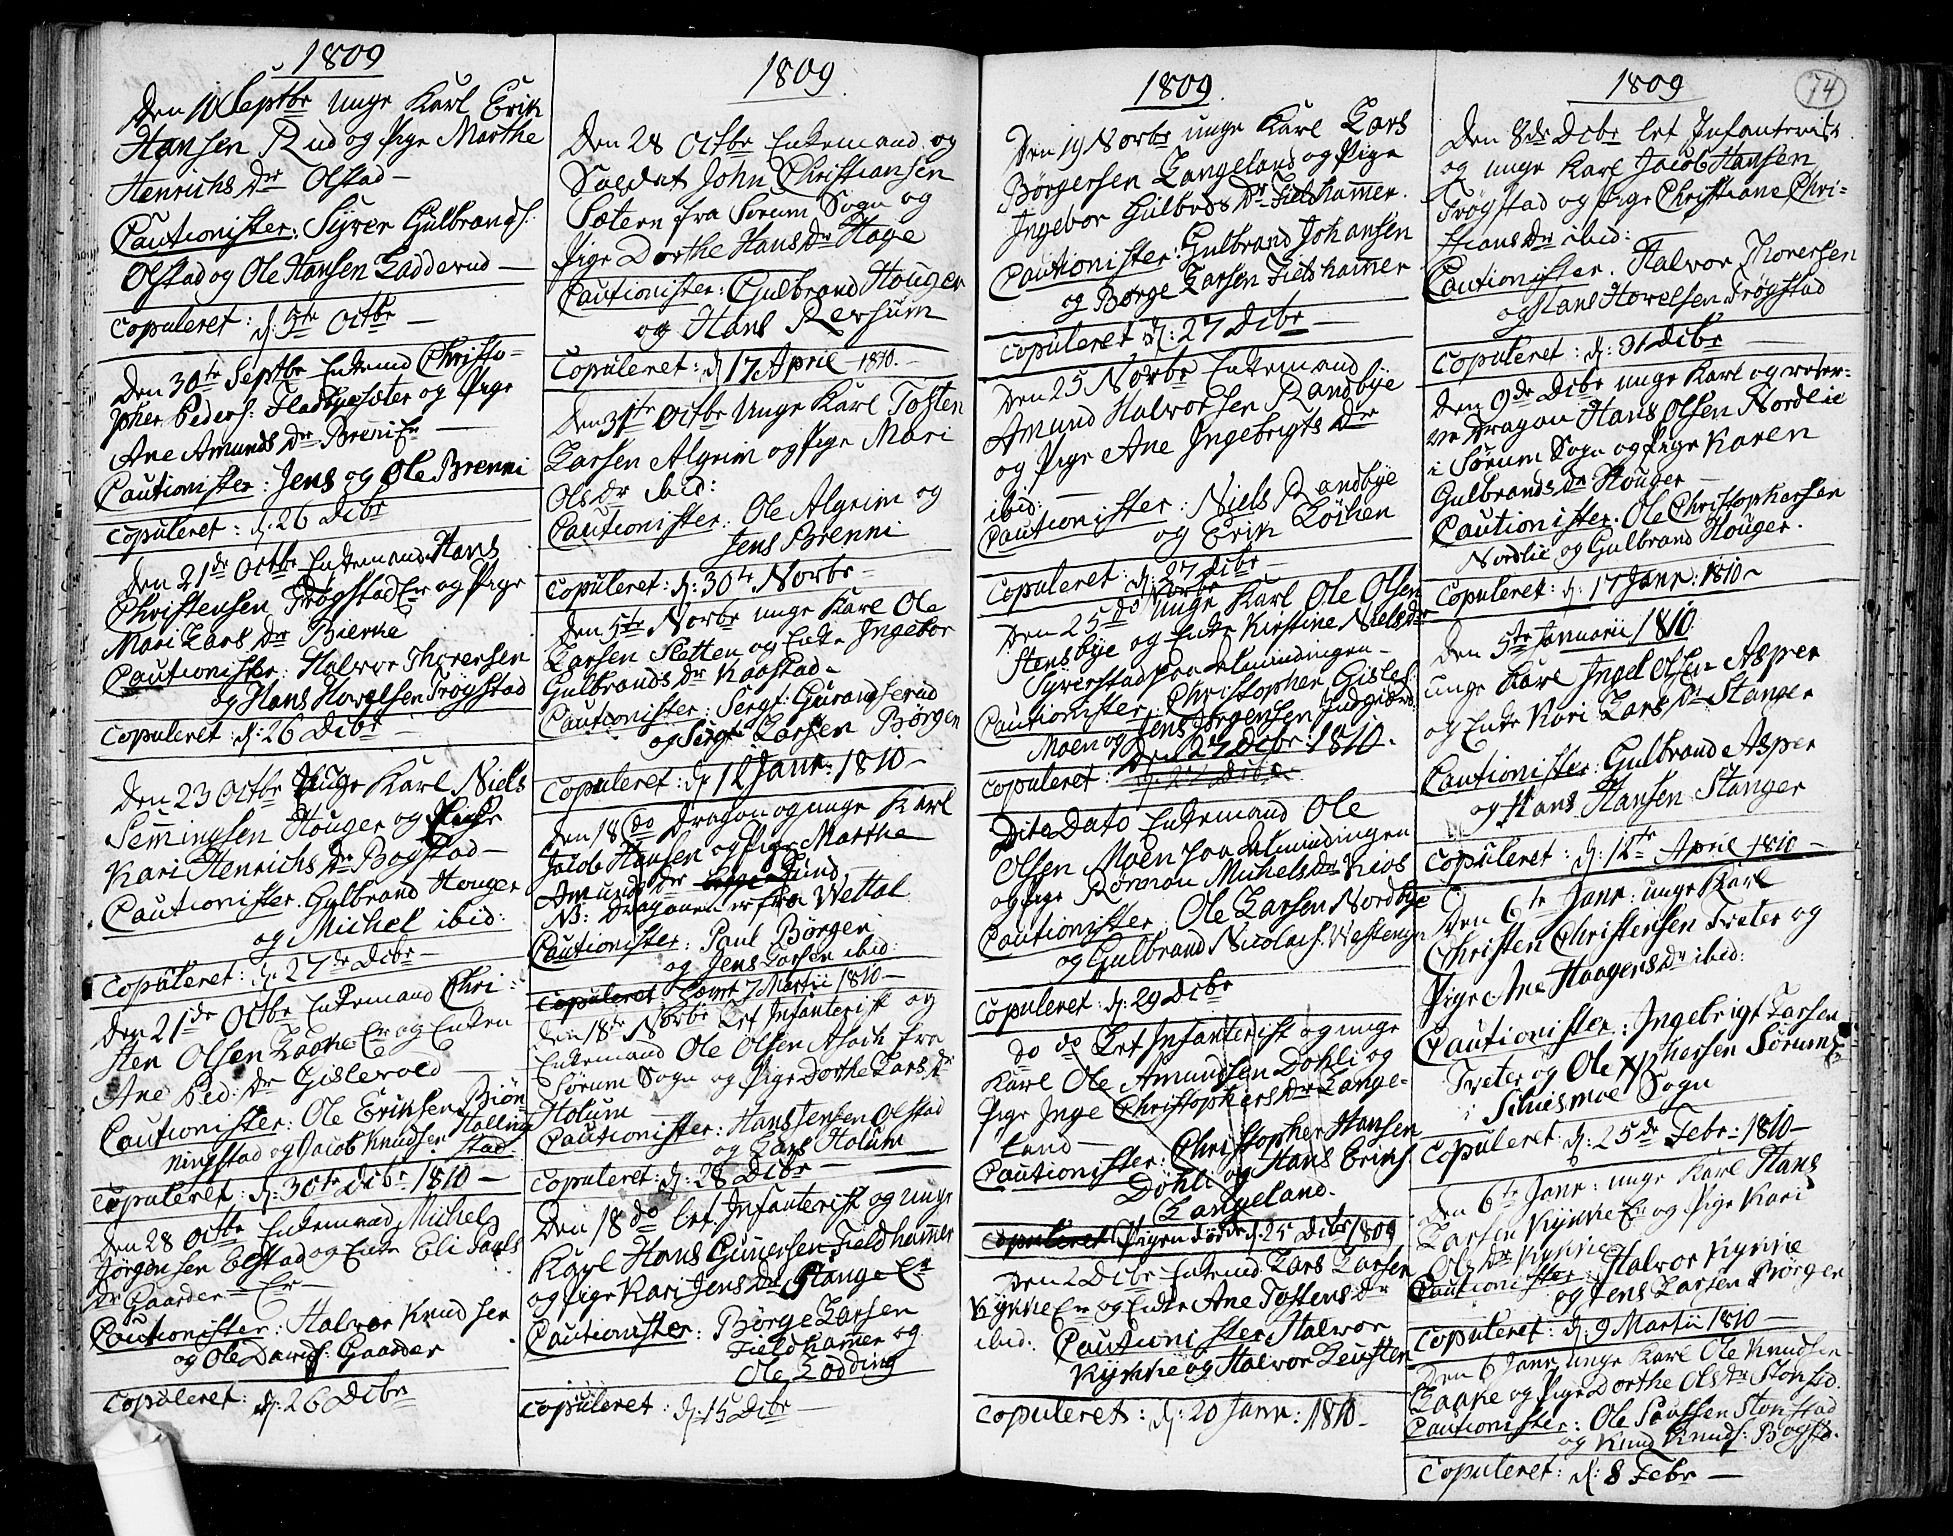 1809
Den 10 Septbr unge Karl Erik
Hansen Rud og Pige Marthe
Henrichs Dr Olstad -
Cautionister: Syver Gulbrands:
Olstad og Ole Hansen Ladderud -
Copuleret: d: 5te Octbr -
Den 30te Septbr Enkemd Christo-
pher Peders: Fladbyesæter og Pige
Ane Amunds Dr Brenni Er -
Cautionister: Jens og Ole Brenni
Copuleret: d: 26 Dcbr
Den 21de Octbr Enkemand Hans
Christensen Trøgstad Er og Pige
Mari Lars Dr Bierke
Cautionister: Halvor Thorersen
og Hans Howelsen Trøgstad
Copuleret: d: 26 Dcbr -
Den 23 Octbr Unge Karl Niels
Semmingsen Houger og
Kari Henrichs Dr Bogstad -
Cautionister: Gulbrand Houger
og Michel ibid:
Copuleret: d: 27de Dcbr -
Den 21de Octbr Enkemand Chri-
sten Olsen Laake Er og Enken
Ane Ped: Dr Gislevold -
Cautionister: Ole Eriksen Biøn-
ningstad og Jacob Knudsen Holling
stad:
Copuleret: d: 30te Dcbr 1810 -
Den 28 Octbr Enkemad Michel
Jørgensen Elstad og Enke Eli Pouls
Dr Gaarder - Er -
Cautionister: Halvor Knudsen
og Ole Davids: Gaarder
Copuleret: d: 26 Dcbr
1809
Den 28 Octbr Enkemand og
Soldat John Christiansen
Sætern fra Sørum Sogn og
Pige Dorthe Hans Dr Hage
Cautionister: Gulbrand Houger
og Hans Refsum
Copuleret: d 17 April - 1810.
Den 31te Octbr Unge Karl Tosten
Larsen Algrim og Pige Mari
Ols Dr ibid:
Cautionister: Ole Algrim og
Jens Brenni
Copuleret: d: 30te Novbr -
Den 5te Novbr unge Karl Ole
Larsen Sletten og Enke Ingebor
Gulbrands Dr Kaastad -
Cautionister: Sergt: Gurandserud
og Sergt Larsen Børgen
Copuleret: d 12 Janr: 1810 -
Den 18 do Dragon og unge Karl
Jacob Hansen og Pige Marthe
Amunds Dr Lund
NB: Dragonen er fra Wettal
Cautionister: Paul Børgen
og Jens Larsen ibid:
Copuleret: 7 Martii 1810 -
Den 18de Novbr Let Infanterist og
Enkemand Ole Olsen Asack fra
Sørum Sogn og Pige Dorthe Lars Dr
Holum
Cautionister: Hans Jensen Olstad
og Lars Holum
Copuleret: d: 28 Dcbr -
Den 18 do let Infanterist og unge
Karl Hans Gunnersen Fieldhammer
og Pige Kari Jens Dr Stange Er
Cautionister: Børge Larsen
Fieldhammer og
Ole Lødding
Copuleret: d: 15 Dcbr -
1809.
Den 19 Novbr unge Karl Lars
Børgersen Langeland og Pige
Ingebor Gulbrds Dr Fieldhammer.
Cautionister: Gulbrand Johansen
og Børge Larsen Fieldhammer
Copuleret d: 27 Dcbr -
Den 25 Novbr Enkemand
Amund Halvorsen Randbye
og Pige Ane Ingebrigts Dr
ibid: -
Cautionister: Niels Randbye
og Erik Løshen
Copuleret: d: 27 Dcbr -
Novbr
Den 25 do unge Karl Ole Olsen
Stensbye og Enke Kirstine Niels Dr
Syverstad paa Almindingen -
Cautionister: Christopher Gisles:
Moen og Jens Jørgensen Indgierd
Den 27 Dcbr 1810.
Copuleret: d: 22 Dcbr
Dito Dato Enkemand Ole
Olsen Moen paa Almindingen
og Pige Rønnou Michels Dr Kios
Cautionister: Ole Larsen Nordbye
og Gulbrand Nicolais: Westengen
Copuleret: d: 29 Dcbr
do do Let Infanterist og unge
Karl Ole Amundsen Døhli og
Pige Inge Christophers Dr Lange-
land -
Cautionister: Christopher Hansen
Døhli og Hans Eriks
Langeland.
Copuleret: Pigen døde d: 25 Dcbr 1809
Den 2 Dcbr Enkemd Lars Larsen
Kykke Er og Enke Ane Tostens Dr
ibid: Cautionister Halvor
Kykke og Halvor Leusten
Copuleret: d: 20 Janr: 1810 -
1809
74
Den 8de Dcbr let Infanterist
og unge Karl Jacob Hansen
Trøgstad og Pige Christiane Chri-
stians Dr ibid:
Cautionister. Halvor Thorersen
og Hans Howelsen Trøgstad
Copuleret: d: 31 Dcbr -
Den 9de Dcbr unge Karl og reser-
ve Dragon Hans Olsen Nordlie
i Sørum Sogn og Pige Karen
Gulbrands Dr Houger -
Cautionister. Ole Christophersen
Nordlie og Gulbrand Houger.
Copuleret: d: 17 Janr: 1810 -
Den 5te Januarii 1810
unge Karl Ingel Olsen Asper
og Enke Kari Lars Dr Stanger
Cautionister: Gulbrand Asper
og Hans Hansen Stanger
Copuleret: d: 12te April 1810 -
Den 6te Janr: unge Karl
Christen Christensen Treter og
Pige Ane Haagens Dr ibid:
Cautionister: Ingebrigt Larsen
Treter og Ole Xphersen Sørum
i Schiesmoe Sogn
Copuleret: d: 25de Febr: 1810 -
Den 6te Janr: unge Karl Hans
Larsen Kykke Er og Pige Kari
Ols Dr Kykke
Cautionister: Halvor Kykke
og Jens Larsen Børgen
Copuleret: d: 9 Martii 1810 -
Den 6 Janr unge Karl Ole Knudsen
Laake og Pige Dorthe Ols Dr Stonstd.
Cautionister: Ole Paulsen Stonstad
og Knud Knuds: Bogstd.
Copuleret: d: 8 Febr -